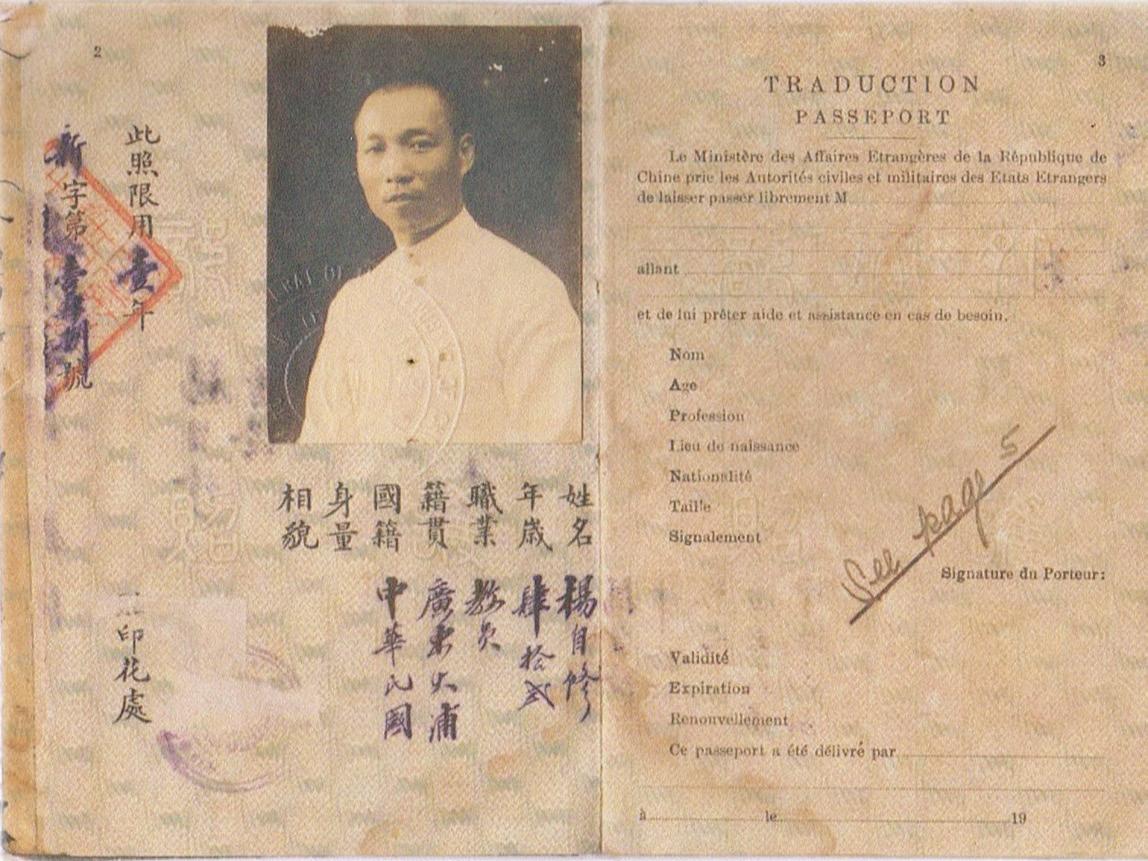 2
此照限用壹年
新字第壹𠦜捌號
姓名 楊自修
年歲 肆拾弍
職業 教员
籍貫 廣東大埔
國籍 中華民國
身量
相貌
印花處
3
TRADUCTION
PASSEPORT
Le Ministère des Affaires Etrangères de la République de
Chine prie les Autorités civiles et militaires des Etats Etrangers
de laisser passer librement M
allant
et de lui prêter aide et assistance en cas de besoin.
Nom
Age
Profession
Lieu de naissance
Nationalité
Taille
Signalement
See page 5
Signature du Porteur:
Validité
Expiration
Renouvellement
Ce passeport a été délivré par
à le 19